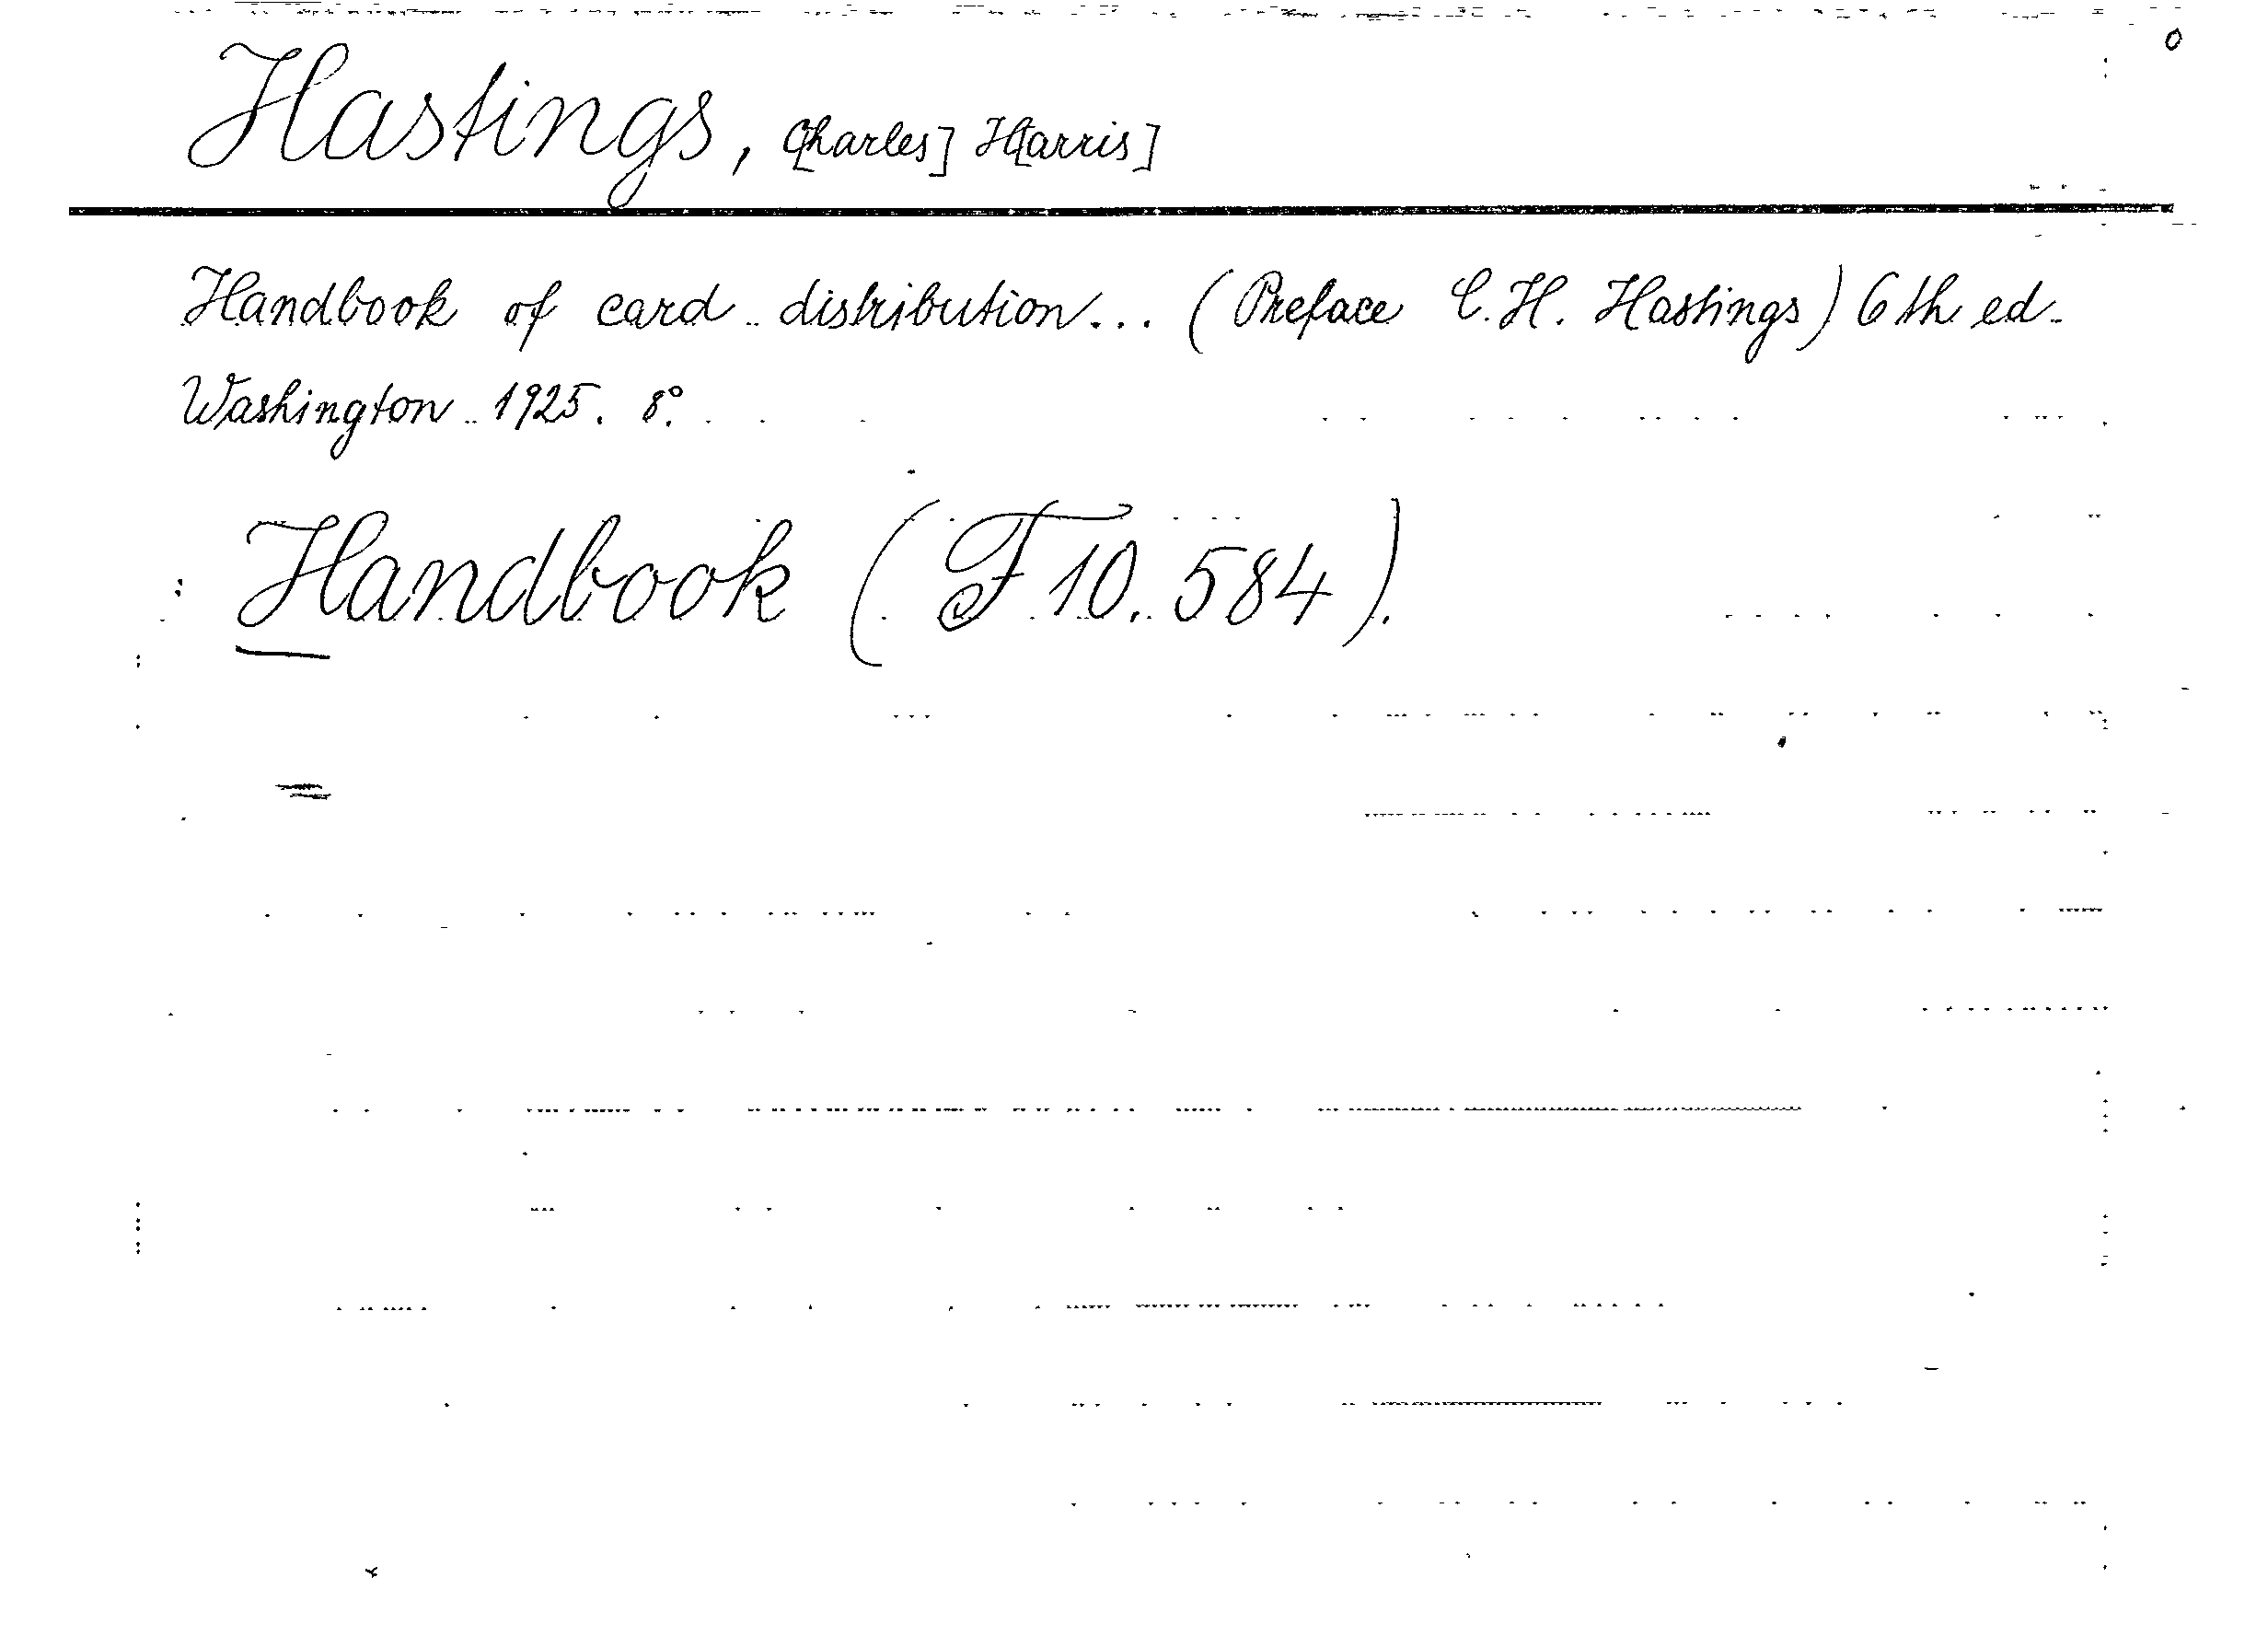 Hastings, C[harles] H[arris]
Handbook of card distribution... (Preface C. H. Hastings) 6th ed.
Washington 1925. 8°.
Handbook (F 10.584).